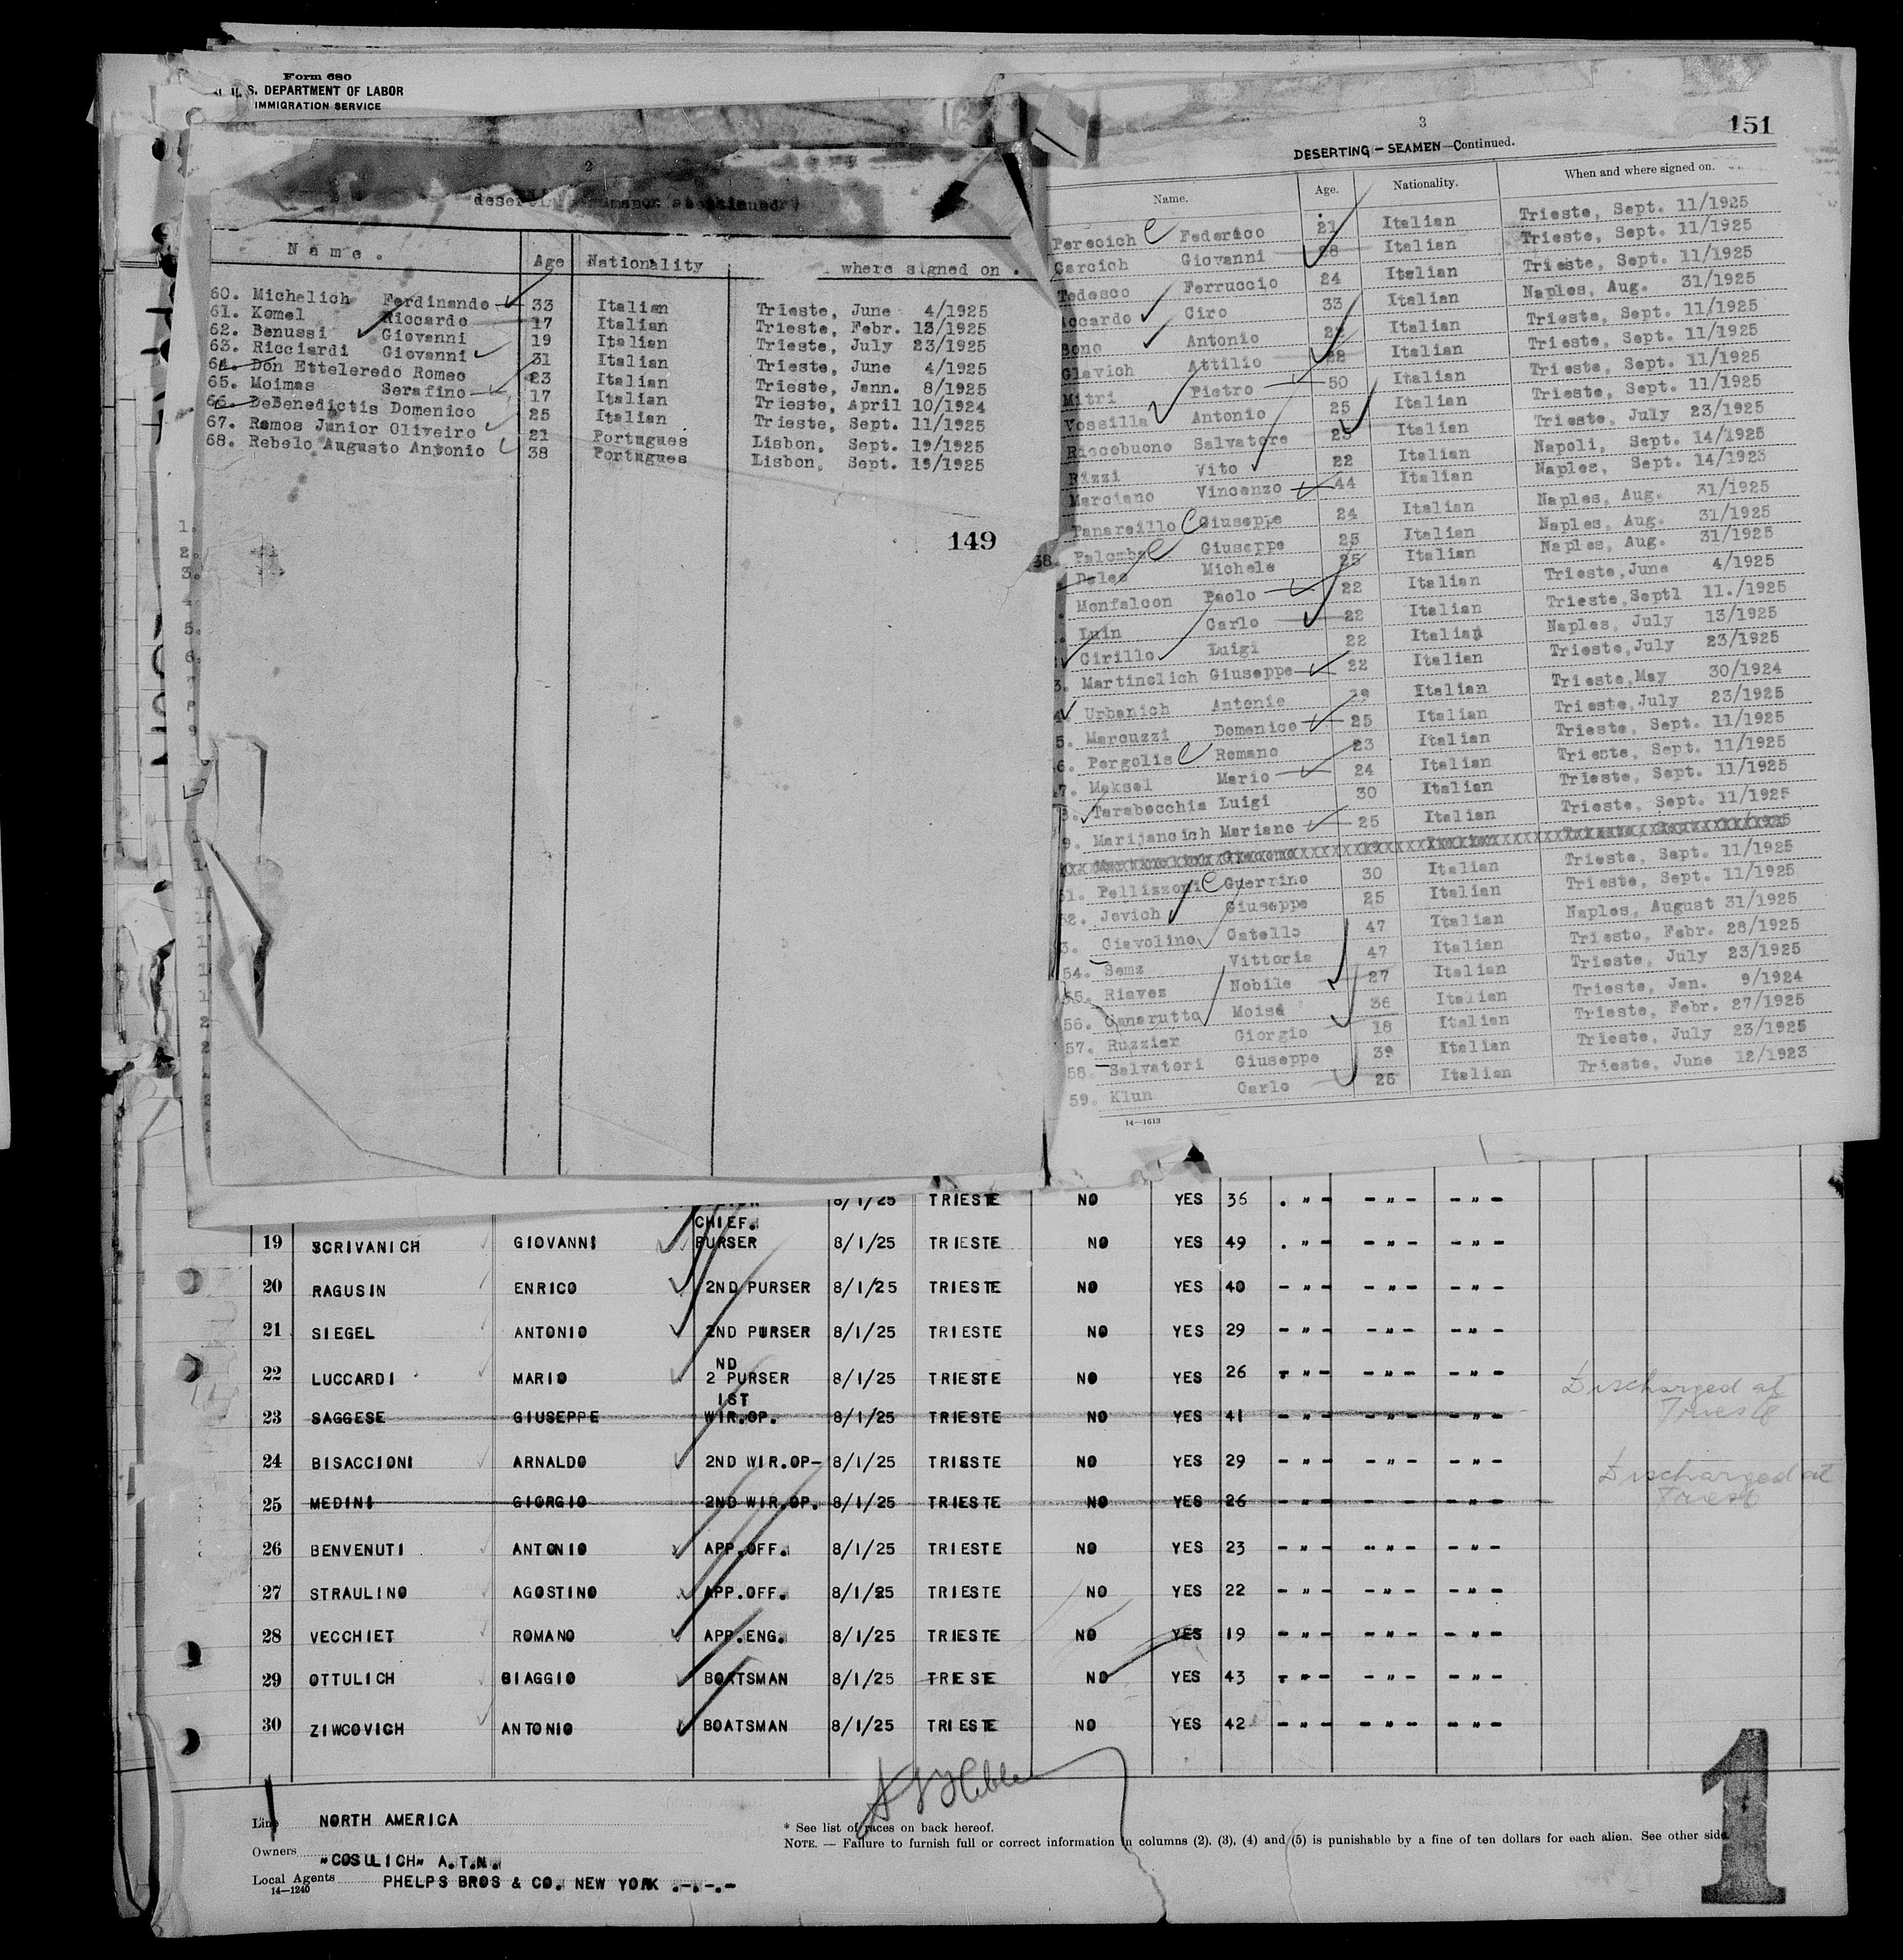 Form 680
U. S. DEPARTMENT OF LABOR
IMMIGRATION SERVICE
2
Name. Age Nationality where signed on.
60. Michelich Ferdinando 33 Italian Trieste, June 4/1925
61. Komel Riccardo 17 Italian Trieste, Febr. 13/1925
62. Benussi Giovanni 19 Italian Trieste, July 23/1925
63. Ricciardi Giovanni 31 Italian Trieste, June 4/1925
64. Don Etteleredo Romeo 23 Italian Trieste, Jann. 8/1925
65. Moimas Serafino 17 Italian Trieste, April 10/1924
66. DeBenedictis Domenico 25 Italian Trieste, Sept. 11/1925
67. Ramos Junior Oliveiro 21 Portugues Lisbon, Sept. 19/1925
68. Rebelo Augusto Antonio 38 Portugues Lisbon, Sept. 19/1925
149
3
151
DESERTING - SEAMEN—Continued.
Name. Age. Nationality. When and where signed on.
Perecich Federico 21 Italian Trieste, Sept. 11/1925
Carcich Giovanni 28 Italian Trieste, Sept. 11/1925
Tedesco Ferruccio 24 Italian Trieste, Sept. 11/1925
Accardo Ciro 33 Italian Naples, Aug. 31/1925
Bono Antonio Italian Trieste, Sept. 11/1925
Glavich Attilio Italian Trieste, Sept. 11/1925
Mitri Pietro 50 Italian Trieste, Sept. 11/1925
Vossilla Antonio 25 Italian Trieste, Sept. 11/1925
Riccobuono Salvatore 25 Italian Trieste, July 23/1925
Rizzi Vito 22 Italian Napoli, Sept. 14/1925
Marciano Vincenzo 44 Italian Naples, Sept. 14/1923
Panareillo Giuseppe 24 Italian Naples, Aug. 31/1925
38. Palomba Giuseppe 25 Italian Naples, Aug. 31/1925
Deleo Michele 25 Italian Naples, Aug. 31/1925
Monfalcon Paolo 22 Italian Trieste,June 4/1925
Luin Carlo 22 Italian Trieste,Septl 11./1925
Cirillo Luigi 22 Italian Naples, July 13/1925
3. Martinolich Giuseppe 22 Italian Trieste,July 23/1925
4. Urbanich Antonio 19 Italian Trieste,May 30/1924
5. Marcuzzi Domenico 25 Italian Trieste,July 23/1925
6. Pergolis Romano 23 Italian Trieste, Sept. 11/1925
7. Maksel Mario 24 Italian Trieste, Sept. 11/1925
8. Tarabocchia Luigi 30 Italian Trieste, Sept. 11/1925
9. Marijancich Mariano 25 Italian Trieste, Sept. 11/1925
51. Pellizzoni Guerrino 30 Italian Trieste, Sept. 11/1925
52. Jovich Giuseppe 25 Italian Trieste, Sept. 11/1925
3. Ciavolino Catello 47 Italian Naples, August 31/1925
54. Semz Vittorio 47 Italian Trieste, Febr. 28/1925
55. Riavez Nobile 27 Italian Trieste, July 23/1925
56. Canarutto Moisé 36 Italian Trieste, Jan. 9/1924
57. Ruzzier Giorgio 18 Italian Trieste, Febr. 27/1925
58. Salvatori Giuseppe 39 Italian Trieste, July 23/1925
59. Klun Carlo 26 Italian Trieste, June 12/1923
14—1613
8/1/25 TRIESTE NO YES 36 . " - - " - - " -
19 SCRIVANICH GIOVANNI CHIEF. PURSER 8/1/25 TRIESTE NO YES 49 . " - - " - - " -
20 RAGUSIN ENRICO 2ND PURSER 8/1/25 TRIESTE NO YES 40 - " - - " - - " -
21 SIEGEL ANTONIO 2ND PURSER 8/1/25 TRIESTE NO YES 29 - " - - " - - " -
22 LUCCARDI MARIO 2ND PURSER 8/1/25 TRIESTE NO YES 26 - " - - " - - " -
Discharged at Trieste
23 SAGGESE GIUSEPPE 1ST WIR.OP. 8/1/25 TRIESTE NO YES 41 - " - - " - - " -
24 BISACCIONI ARNALDO 2ND WIR.OP- 8/1/25 TRISSTE NO YES 29 - " - - " - - " -
Discharged at Triest
25 MEDINI GIORGIO 2ND WIR.OP. 8/1/25 TRIESTE NO YES 26 - " - - - - " -
26 BENVENUTI ANTONIO APP.OFF. 8/1/25 TRIESTE NO YES 23 - " - - " - - " -
27 STRAULINO AGOSTINO APP.OFF. 8/1/25 TRIESTE NO YES 22 - " - - " - - " -
28 VECCHIET ROMANO APP.ENG. 8/1/25 TRIESTE NO YES 19 - " - - " - - " -
29 OTTULICH BIAGGIO BOATSMAN 8/1/25 TRIESTE NO YES 43 - " - - " - - " -
30 ZIWCOVICH ANTONIO BOATSMAN 8/1/25 TRIESTE NO YES 42 - " - - " - - " -
Line NORTH AMERICA
Owners "COSULICH" A.T.N.
Local Agents PHELPS BROS & CO. NEW YORK .-.-.-
14—1240
* See list of races on back hereof.
NOTE. — Failure to furnish full or correct information in columns (2), (3), (4) and (5) is punishable by a fine of ten dollars for each alien. See other side.
1